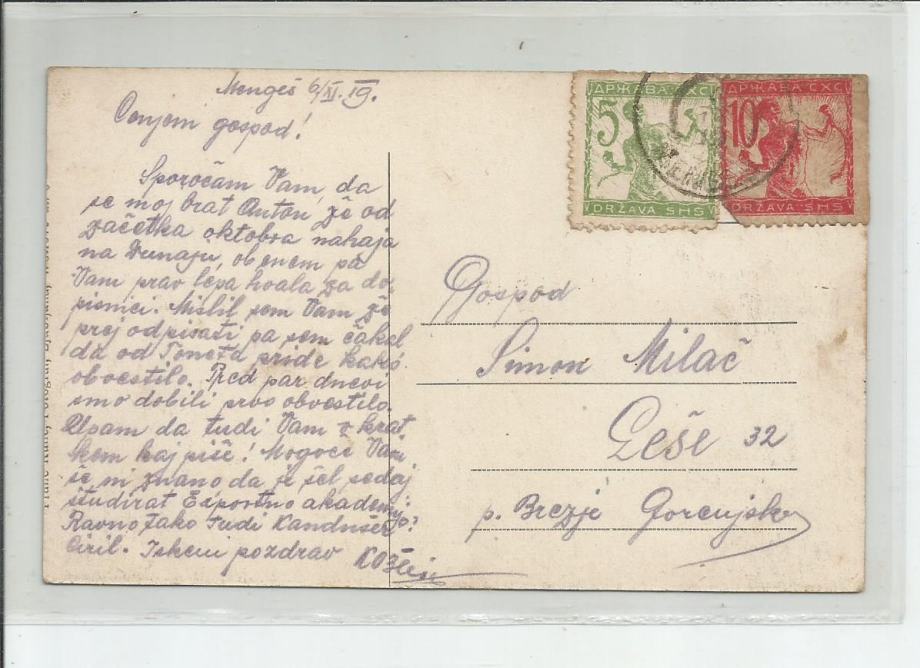 Mengeš 6/XI. 19.
Cenjeni gospod!
Sporočam Vam, da
se moj brat Anton že od
začetka oktobra nahaja
na Dunaju, obenem pa
Vam prav lepa hvala za do-
pisnici. Mislil sem Vam že
prej odpisati pa sem čakal
da od Toneta pride kako
obvestilo. Pred par dnevi
smo dobili prvo obvestilo.
Upam da tudi Vam v krat-
kem kaj piše! Mogoče Vam
še ni znano da je šel sedaj
študirat Exportno akademijo?
Ravno tako tudi Kandušer
Ciril. Iskreni pozdrav
5
ДРЖАВА СХС
DRŽAVA SHS
10
ДРЖАВА СХС
DRŽAVA SHS
Gospod
Simon Milač
Leše 32
p. Brezje Gorenjsko